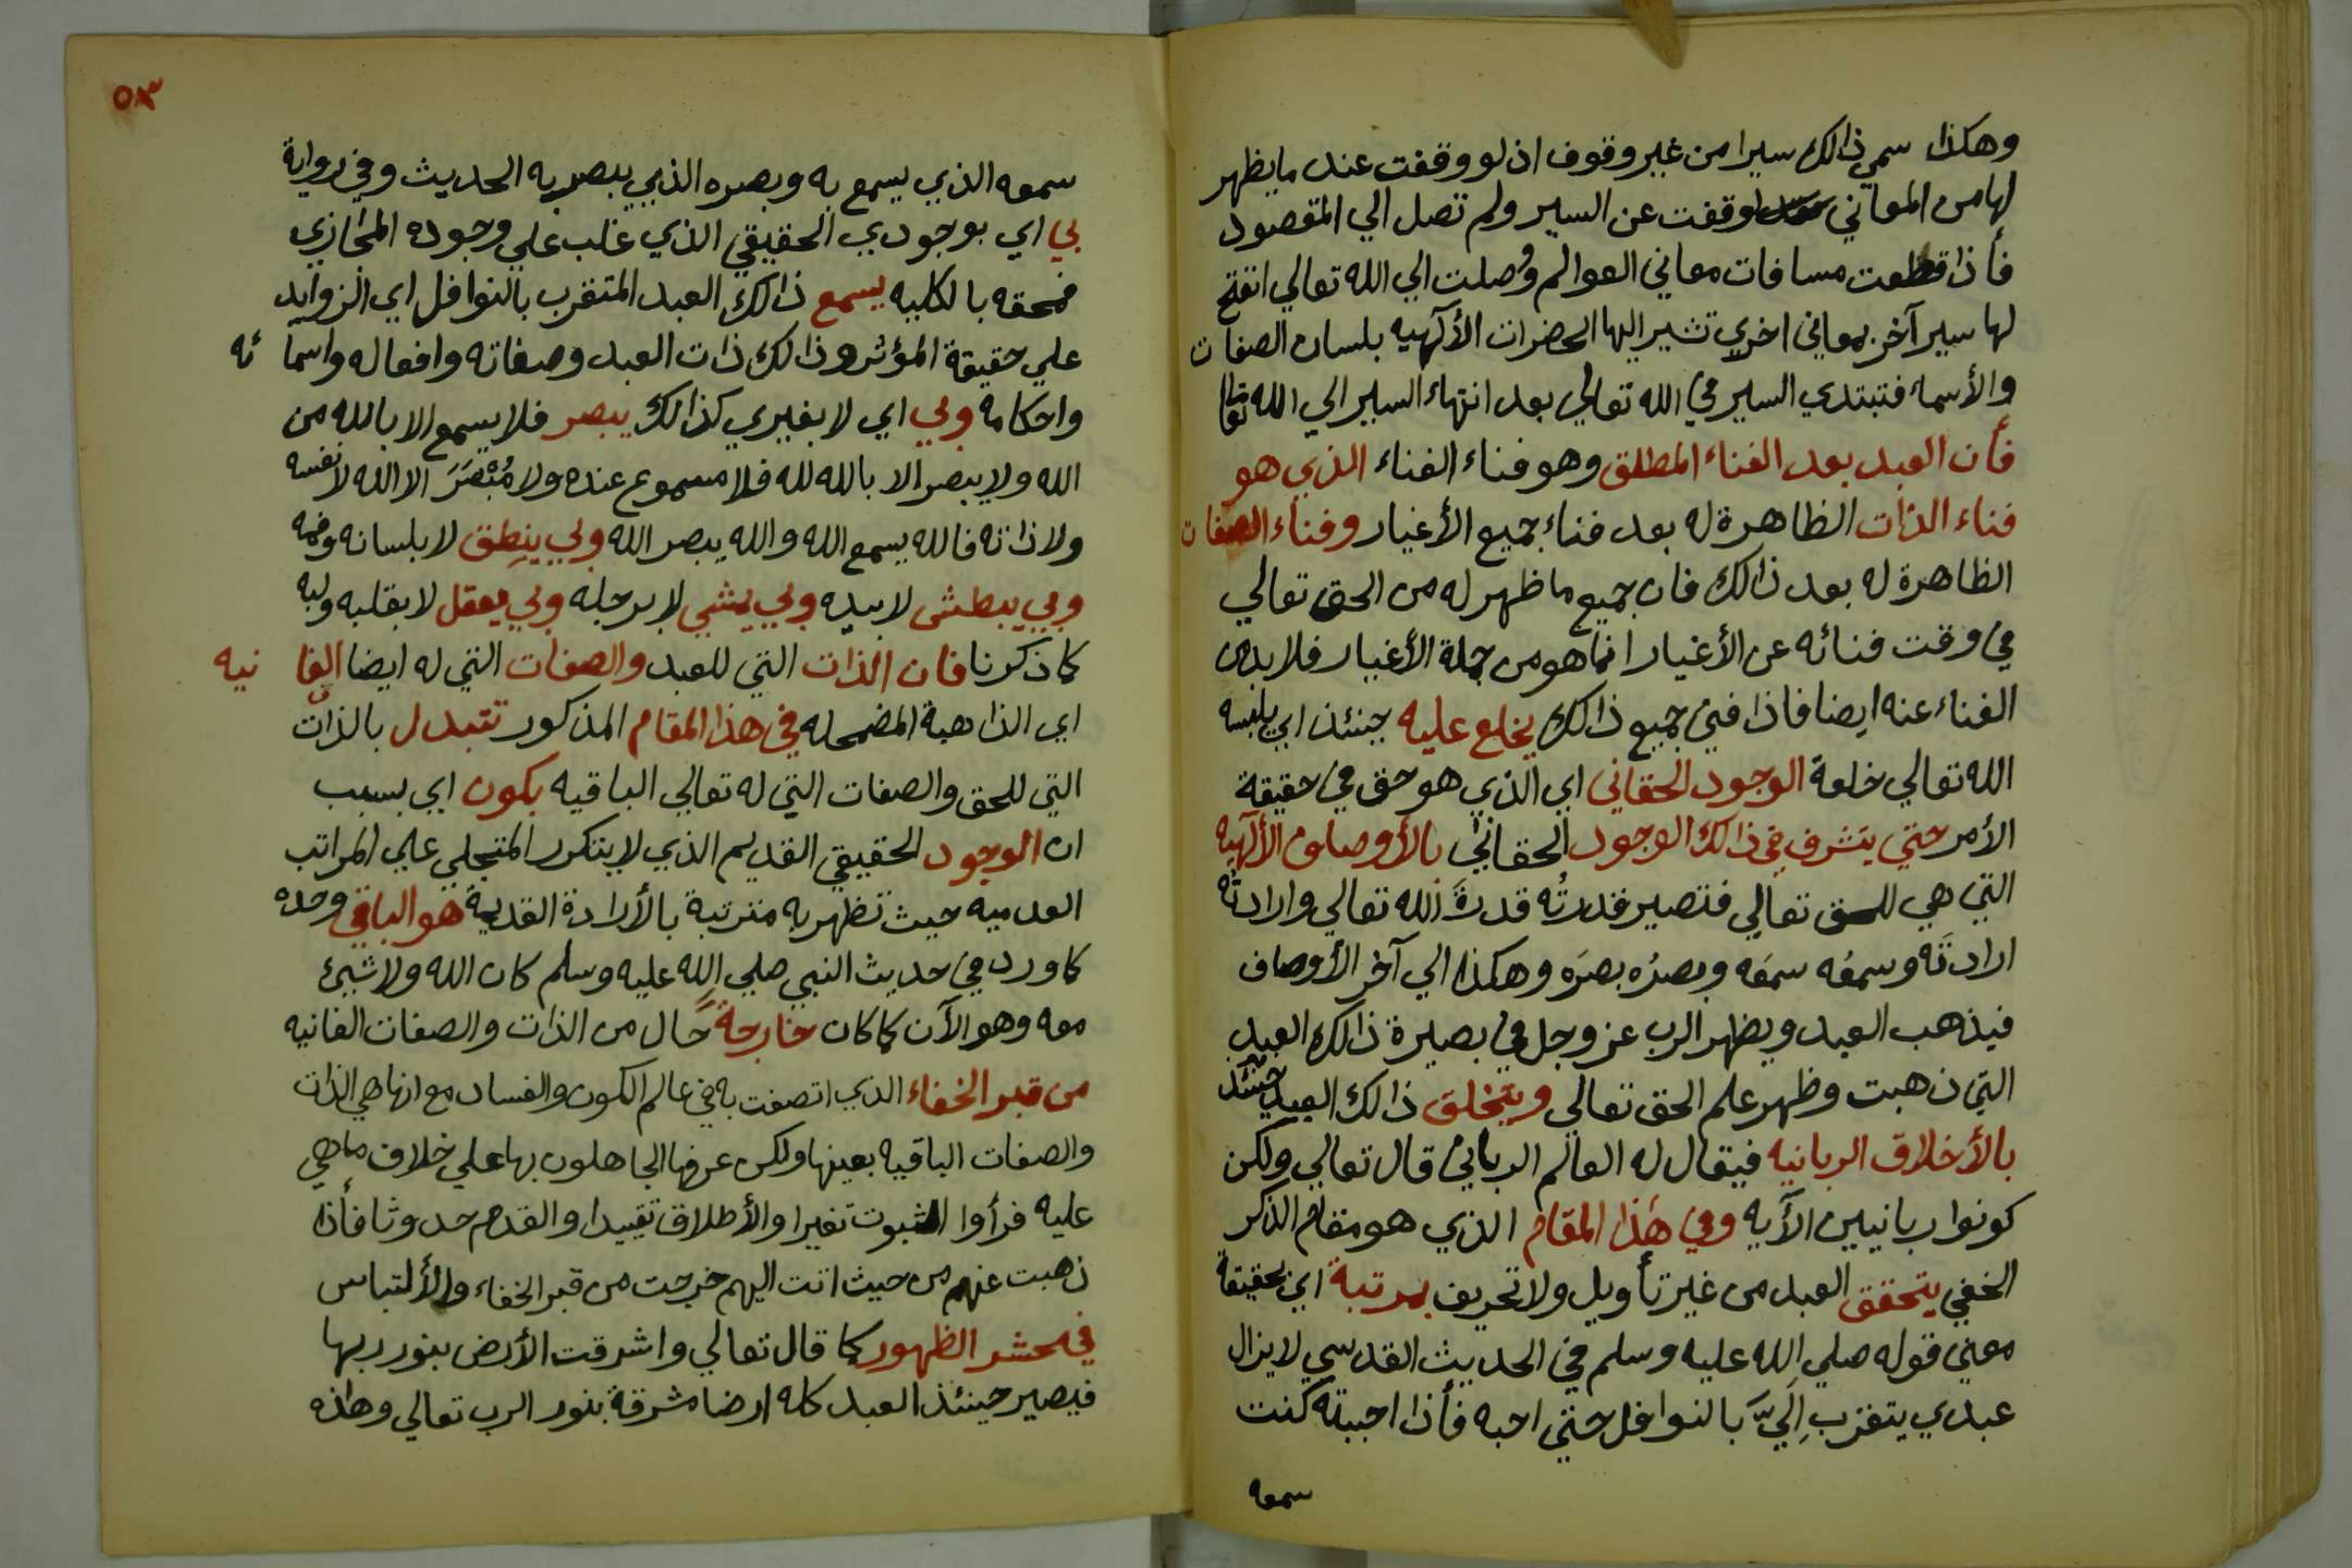 وهكذا سمي ذالك سيرا من غير وقوف اذ لو وقفت عند ما يظهر
لها من المعاني لوقفت عن السير ولم تصل الي المقصود
فأذا قطعت مسافات معاني العوالم وُصلت الي الله تعالي انفتح
لها سير آخر بمعاني اخري تشير اليها الحضرات الألٓهيه بلسان الصفات
والأسماء فتبتدي السير في الله تعالي بعد انتهاء السير الي الله تعالي
فأن العبد بعد الفناء المطلق وهو فناء الفناء الذي هو
فناء الذات الظاهرة له بعد فناء جميع الأغيار وفناء الصفات
الظاهرة له بعد ذالك فان جميع ما ظهر له من الحق تعالي
في وقت فنائه عن الأغيار انما هو من جملة الأغيار فلا بد من
الفناء عنه ايضا فاذا فني جميع ذالك يخلع عليه حينئذ اي يلبسه
الله تعالي خلعة الوجود الحقاني اي الذي هو حق في حقيقة
الأمر حتي يتشرف في ذالك الوجود الحقاني بالأوصاف الألٓهيه
التي هي للحق تعالي فتصير قدرتُه قدرةَ الله تعالي وارادتُه
ارادتَه وسمعُه سمعَه وبصرُه بصرَه وهكذا الي آخر الأوصاف
فيذهب العبد ويظهر الرب عز وجل في بصيرة ذالك العبد
التي ذهبت وظهر علم الحق تعالي ويتخلق ذالك العبد حينئذ
بالأخلاق الربانيه فيقال له العالم الرباني قال تعالي ولكن
كونوا ربانيين الأيه وفي هٰذا المقام الذي هو مقام الذكر
الخفي يتحقق العبد من غير تأويل ولا تحريف بمرتبة اي بحقيقة
معني قوله صلي الله عليه وسلم في الحديث القدسي لا يزال
عبدي يتقرب اِليَّ بالنوافل حتي احبه فأذا احببته كنت
سمعه
٥٣
سمعه الذي يسمع به وبصره الذي يبصر به الحديث وفي رواية
بي اي بوجودي الحقيقي الذي غلب علي وجوده المجازي
فمحقه بالكليه يسمع ذالك العبد المتقرب بالنوافل اي الزوايد
علي حقيقة المؤثر وذالك ذات العبد وصفاته وافعاله واسمائه
واحكامه وبي اي لا بغيري كذالك يبصر فلا يسمع الا بالله من
الله ولا يبصر الا بالله لله فلا مسموع عنده ولا مُبْصَرَ الا الله لا نفسه
ولا ذاته فالله يسمع الله والله يبصر الله وبي ينطق لا بلسانه وفمه
وبي يبطش لا بيده وبي يمشي لا برجله وبي يعقل لا بقلبه ولبه
كما ذكرنا فان الذات التي للعبد والصفات التي له ايضا الفانيه
اي الذاهبة المضمحله في هذا المقام المذكور تتبدل بالذات
التي للحق والصفات التي له تعالي الباقيه بكون اي بسبب
ان الوجود الحقيقي القديم الذي لا يتكرر المتجلي علي المراتب
العدميه حيث تظهر به مترتبة بالأرادة القديمة هو الباقي وحده
كما ورد في حديث النبي صلي الله عليه وسلم كان الله ولا شيئ
معه وهو الآن كما كان خارجةً حال من الذات والصفات الفانيه
من قبر الخفاء الذي اتصفت به في عالم الكون والفساد مع انها هي الذات
والصفات الباقيه بعينها ولكن عرفها الجاهلون بها علي خلاف ما هي
عليه فرأوا الثبوت تغيرا والأطلاق تقييدا والقدم حدوثا فأذا
ذهبت عنهم من حيث اتت اليهم خرجت من قبر الخفاء والألتباس
في محشر الظهور كما قال تعالي واشرقت الأرض بنور ربها
فيصير حينئذ العبد كله ارضا مشرقة بنور الرب تعالي وهٰذه